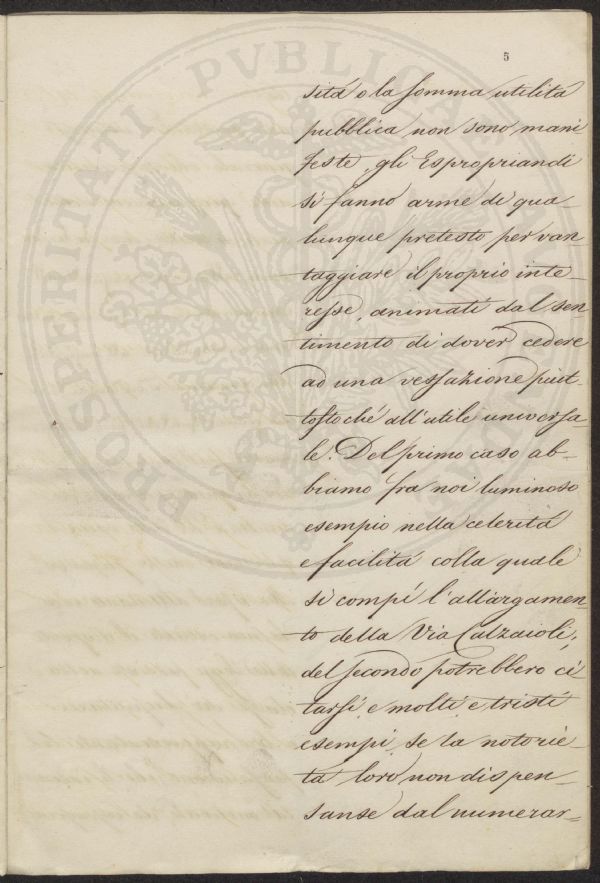 PROSPERITATI PVBLICAE
5
sitá o la somma utilitá
pubblica non sono mani
feste, gli Espropriandi
si fanno arme di qua_
lunque pretesto per van
taggiare il proprio inte_
resse, animati dal sen
timento di dover cedere
ad una vessazione piut_
tosto ché all'utile universa_
le. Del primo caso ab_
biamo fra noi luminoso
esempio nella celeritá
e facilitá colla quale
si compí l'allargamen_
to della Via Calzaioli,
del secondo potrebbero ci_
tarsi e molti e tristi
esempi, se la notorie_
tá loro non dispen_
sanse dal numerar_